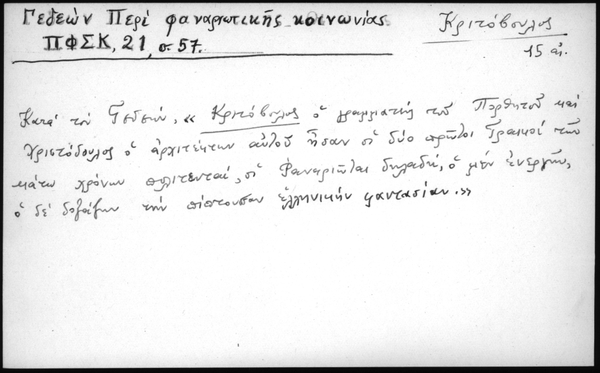 Γεδεών Περί φαναριωτικῆς κοινωνίας
ΠΦΣΚ, 21, σ. 57.
Κριτόβουλος
15 αἰ.
Κατά τόν Γεδεών, «Κριτόβουλος ὁ γραμματεύς τοῦ Πορθητοῦ καί
Χριστόδουλος ὁ ἀρχιτέκτων αὐτοῦ ἦσαν οἱ δύο πρῶτοι Γραικοί τῶν
κάτω χρόνων πολιτευταί, οἱ Φαναριῶται δηλαδή, ὁ μέν ἐνεργῶν,
ὁ δέ δοξάζων τήν ἑλληνικήν φαντασίαν.»